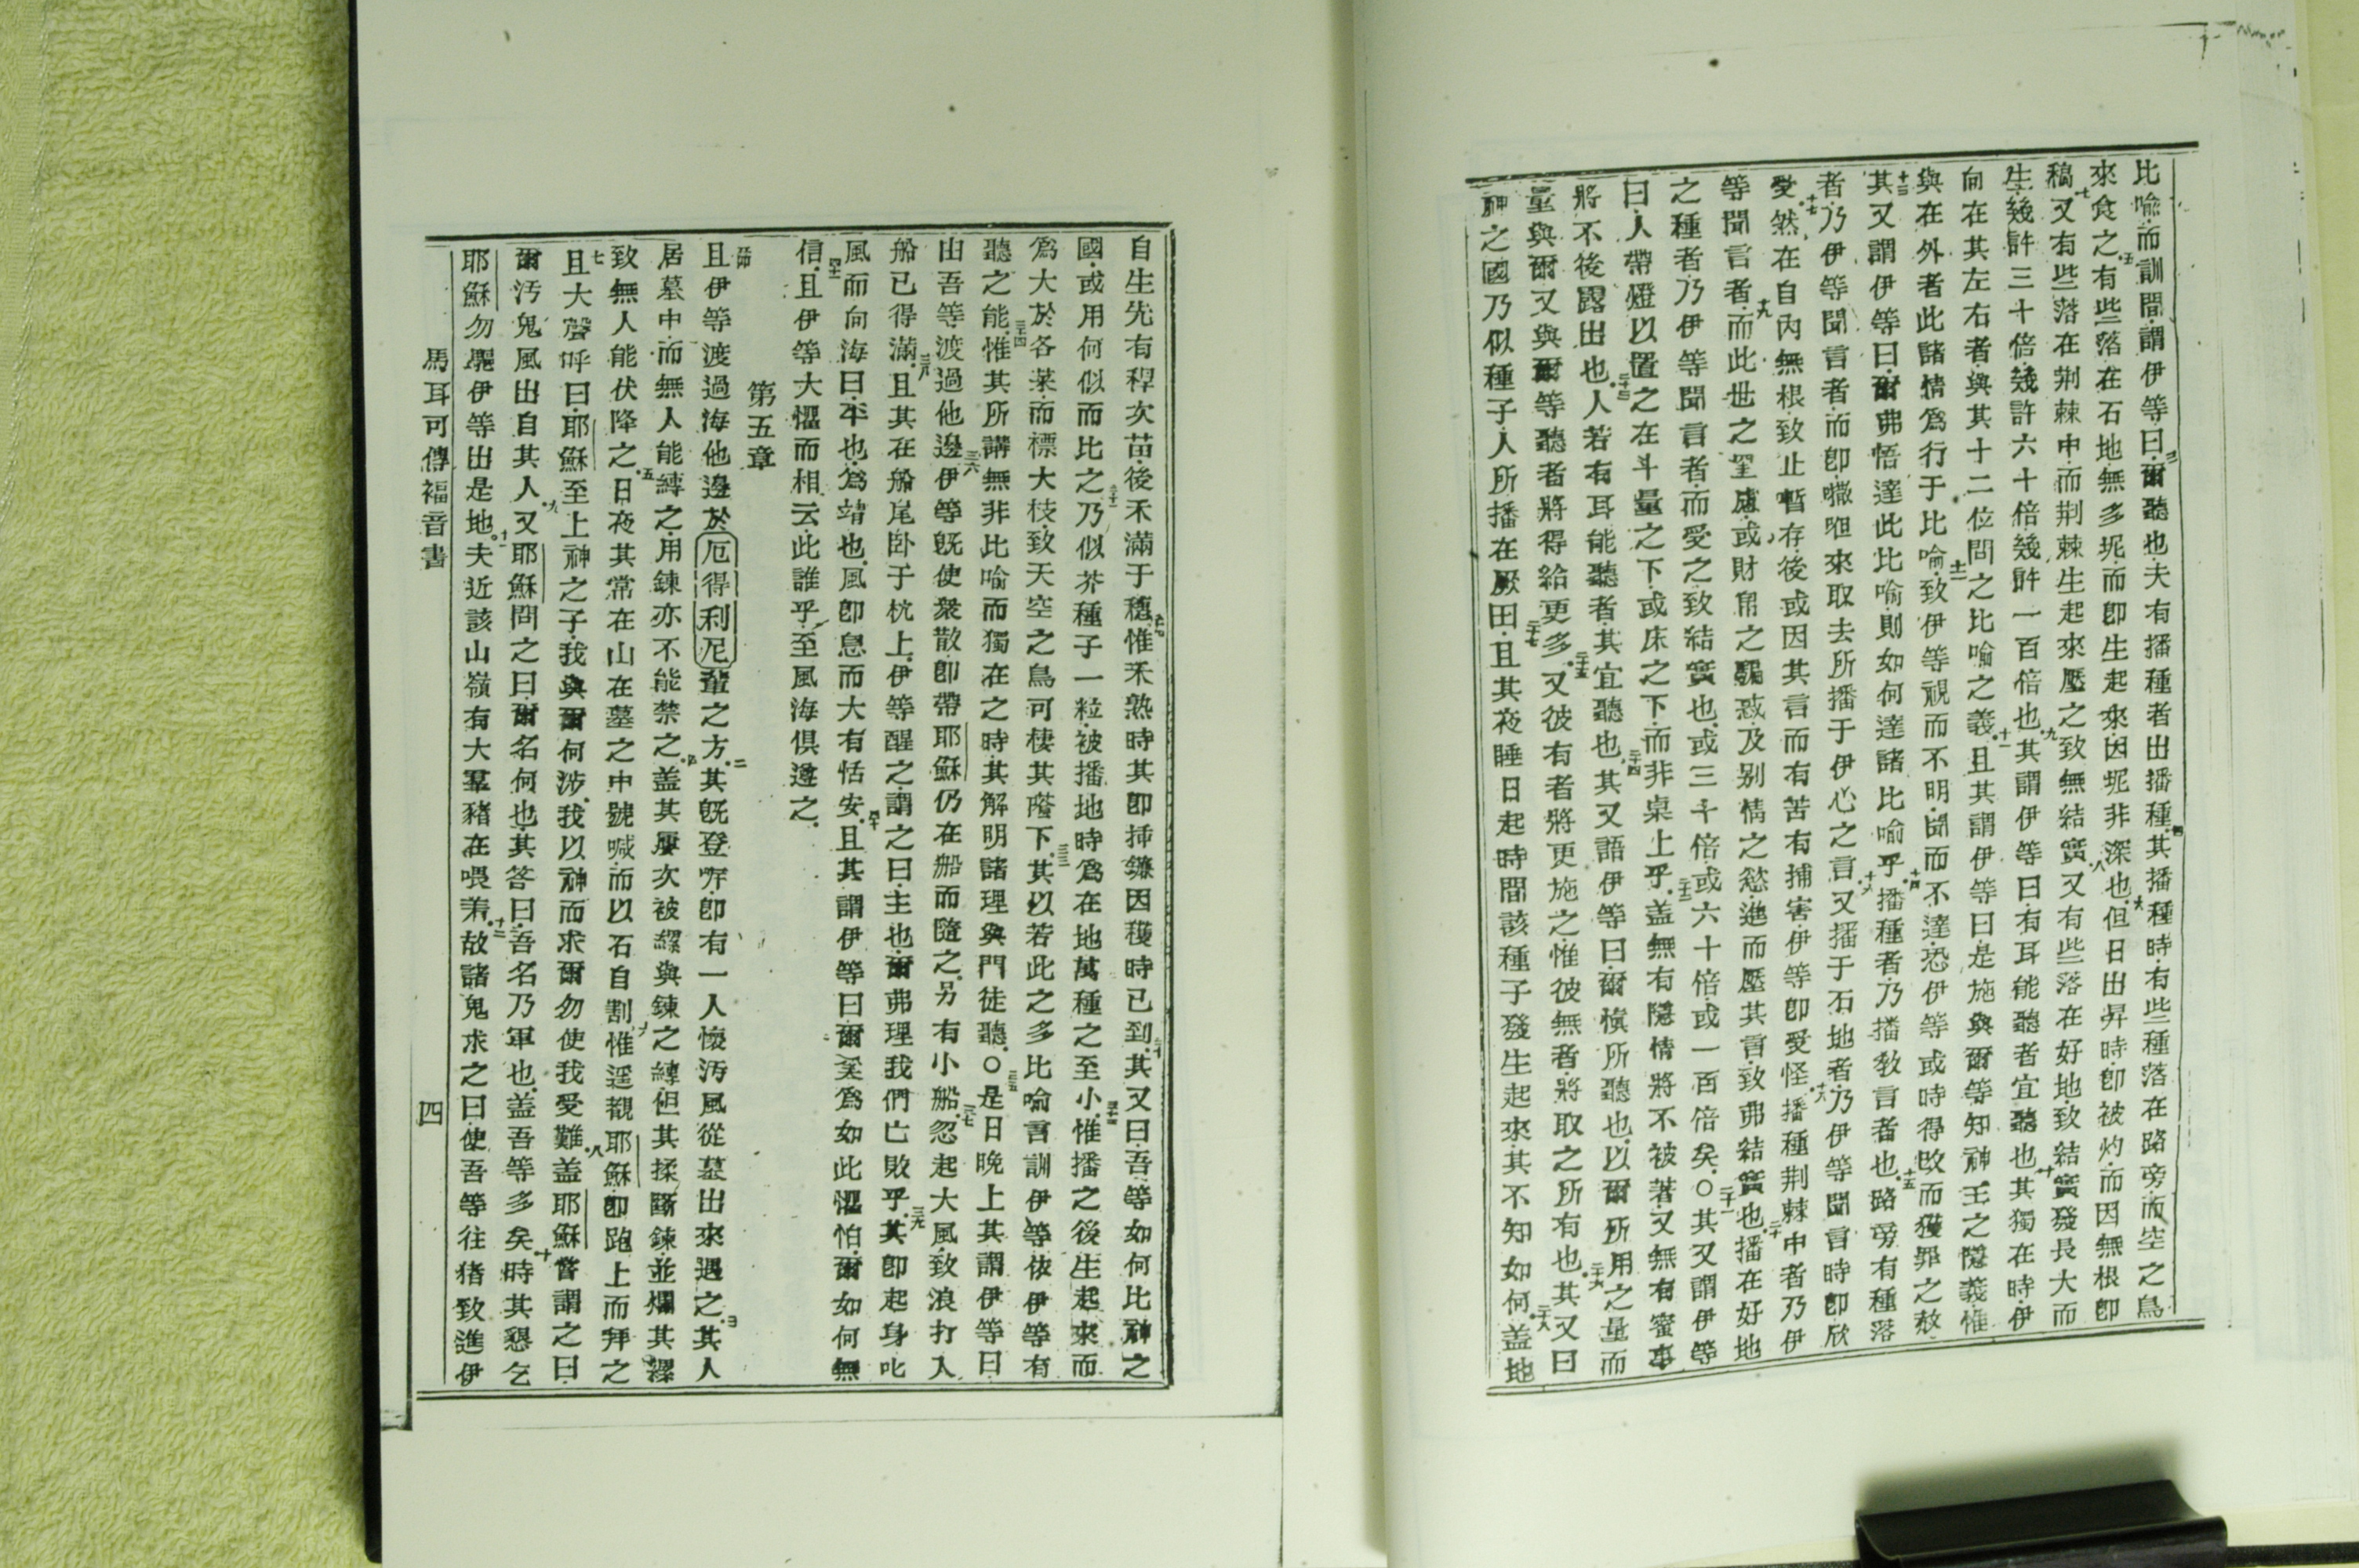 比喻而訓間謂伊等曰爾聽也夫有播種者出播種其播種時有些種落在路旁而空之鳥
來食之有些落在石地無多坭而卽生起來因坭非深也但日出昇時卽被灼而因無根卽
稿又有些落在荆棘中而荆棘生起來壓之致無結實又有些落在好地致結實發長大而
生幾許三十倍幾許六十倍幾許一百倍也其謂伊等曰有耳能聽者宜聽也其獨在時伊
向在其左右者與其十二位問之比喻之義且其謂伊等曰是施與爾等知神王之隱義惟
與在外者此諸情爲行于比喻致伊等視而不明聞而不達恐伊等或時得改而獲罪之赦
其又謂伊等曰爾弗悟達此比喻則如何達諸比喻乎播種者乃播敎言者也路旁有種落
者乃伊等聞言者而卽㘔呾來取去所播于伊心之言又播于石地者乃伊等聞言時卽欣
受然在自內無根致止暫存後或因其言而有苦有捕害伊等卽受怪播種荆棘中者乃伊
等聞言者而此世之罣慮或財帛之騙惑及别情之慾進而壓其言致弗結實也播在好地
之種者乃伊等聞言者而受之致結實也或三十倍或六十倍或一百倍矣○其又謂伊等
曰人帶燈以置之在斗量之下或床之下而非桌上乎盖無有隱情將不被著又無有蜜事
將不後露出也人若有耳能聽者其宜聽也其又語伊等曰爾愼所聽也以爾所用之量而
量與爾又與爾等聽者將得給更多又彼有者將更施之惟彼無者將取之所有也其又曰
神之國乃似種子人所播在厥田且其夜睡日起時間該種子發生起來其不知如何盖地
自生先有稈次苗後禾滿于穗惟禾熟時其卽揷鐮因穫時已到其又曰吾等如何比神之
國或用何似而比之乃似芥種子一粒被播地時爲在地萬種之至小惟播之後生起來而
爲大於各菜而標大枝致天空之鳥可棲其蔭下其以若此之多比喻言訓伊等依伊等有
聽之能惟其所講無非比喻而獨在之時其解明諸理與門徒聽○是日晚上其謂伊等曰
由吾等渡過他邊伊等旣使衆散卽帶耶穌仍在船而隨之另有小船忽起大風致浪打入
船已得滿且其在船尾卧于枕上伊等醒之謂之曰主也爾弗理我們亡敗乎其卽起身叱
風而向海曰平也爲靖也風卽息而大有恬安且其謂伊等曰爾奚爲如此懼怕爾如何無
信且伊等大懼而相云此誰乎至風海俱遵之
第五章
且伊等渡過海他邊於厄得利尼輩之方其旣登岸卽有一人懷汚風從墓出來遇之其人
居墓中而無人能縛之用鍊亦不能禁之盖其屢次被縲與鍊之縛但其揉斷鍊並爛其縲
致無人能伏降之日夜其常在山在墓之中號喊而以石自割惟遥觀耶穌卽跑上而拜之
且大聲呼曰耶穌至上神之子我與爾何涉我以神而求爾勿使我受難盖耶穌嘗謂之曰
爾汚鬼風出自其人又耶穌問之曰爾名何也其答曰吾名乃軍也盖吾等多矣時其懇乞
耶穌勿驅伊等出是地夫近該山嶺有大羣豬在喂養故諸鬼求之曰使吾等往猪致進伊
馬耳可傳福音書
四